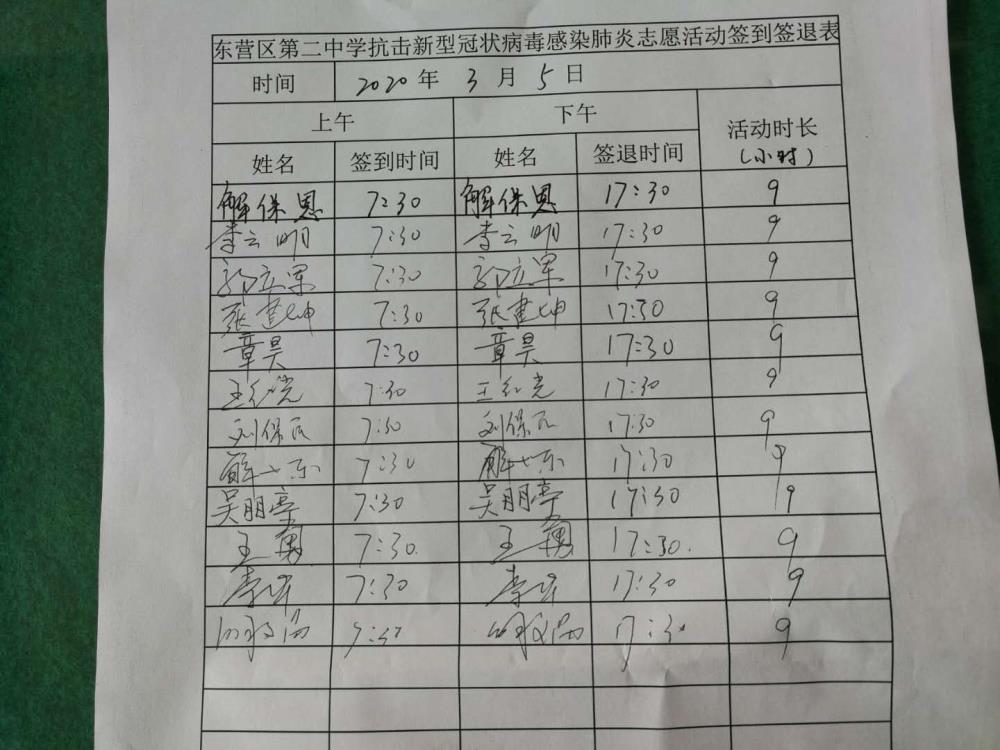 东营区第二中学抗击新型冠状病毒感染肺炎志愿活动签到签退表
时间 2020 年 3 月 5 日
上午 下午 活动时长
(小时)
姓名 签到时间 姓名 签退时间
解保恩 7:30 解保恩 17:30 9
李云明 7:30 李云明 17:30 9
郭立军 7:30 郭立军 17:30 9
张建坤 7:30 张建坤 17:30 9
章昊 7:30 章昊 17:30 9
王红光 7:30 王红光 17:30 9
刘保 7:30 刘保 17:30 9
解 7:30 解 17:30 9
吴朋亭 7:30 吴朋亭 17:30 9
王勇 7:30 王勇 17:30 9
李 7:30 李 17:30 9
17:30 9